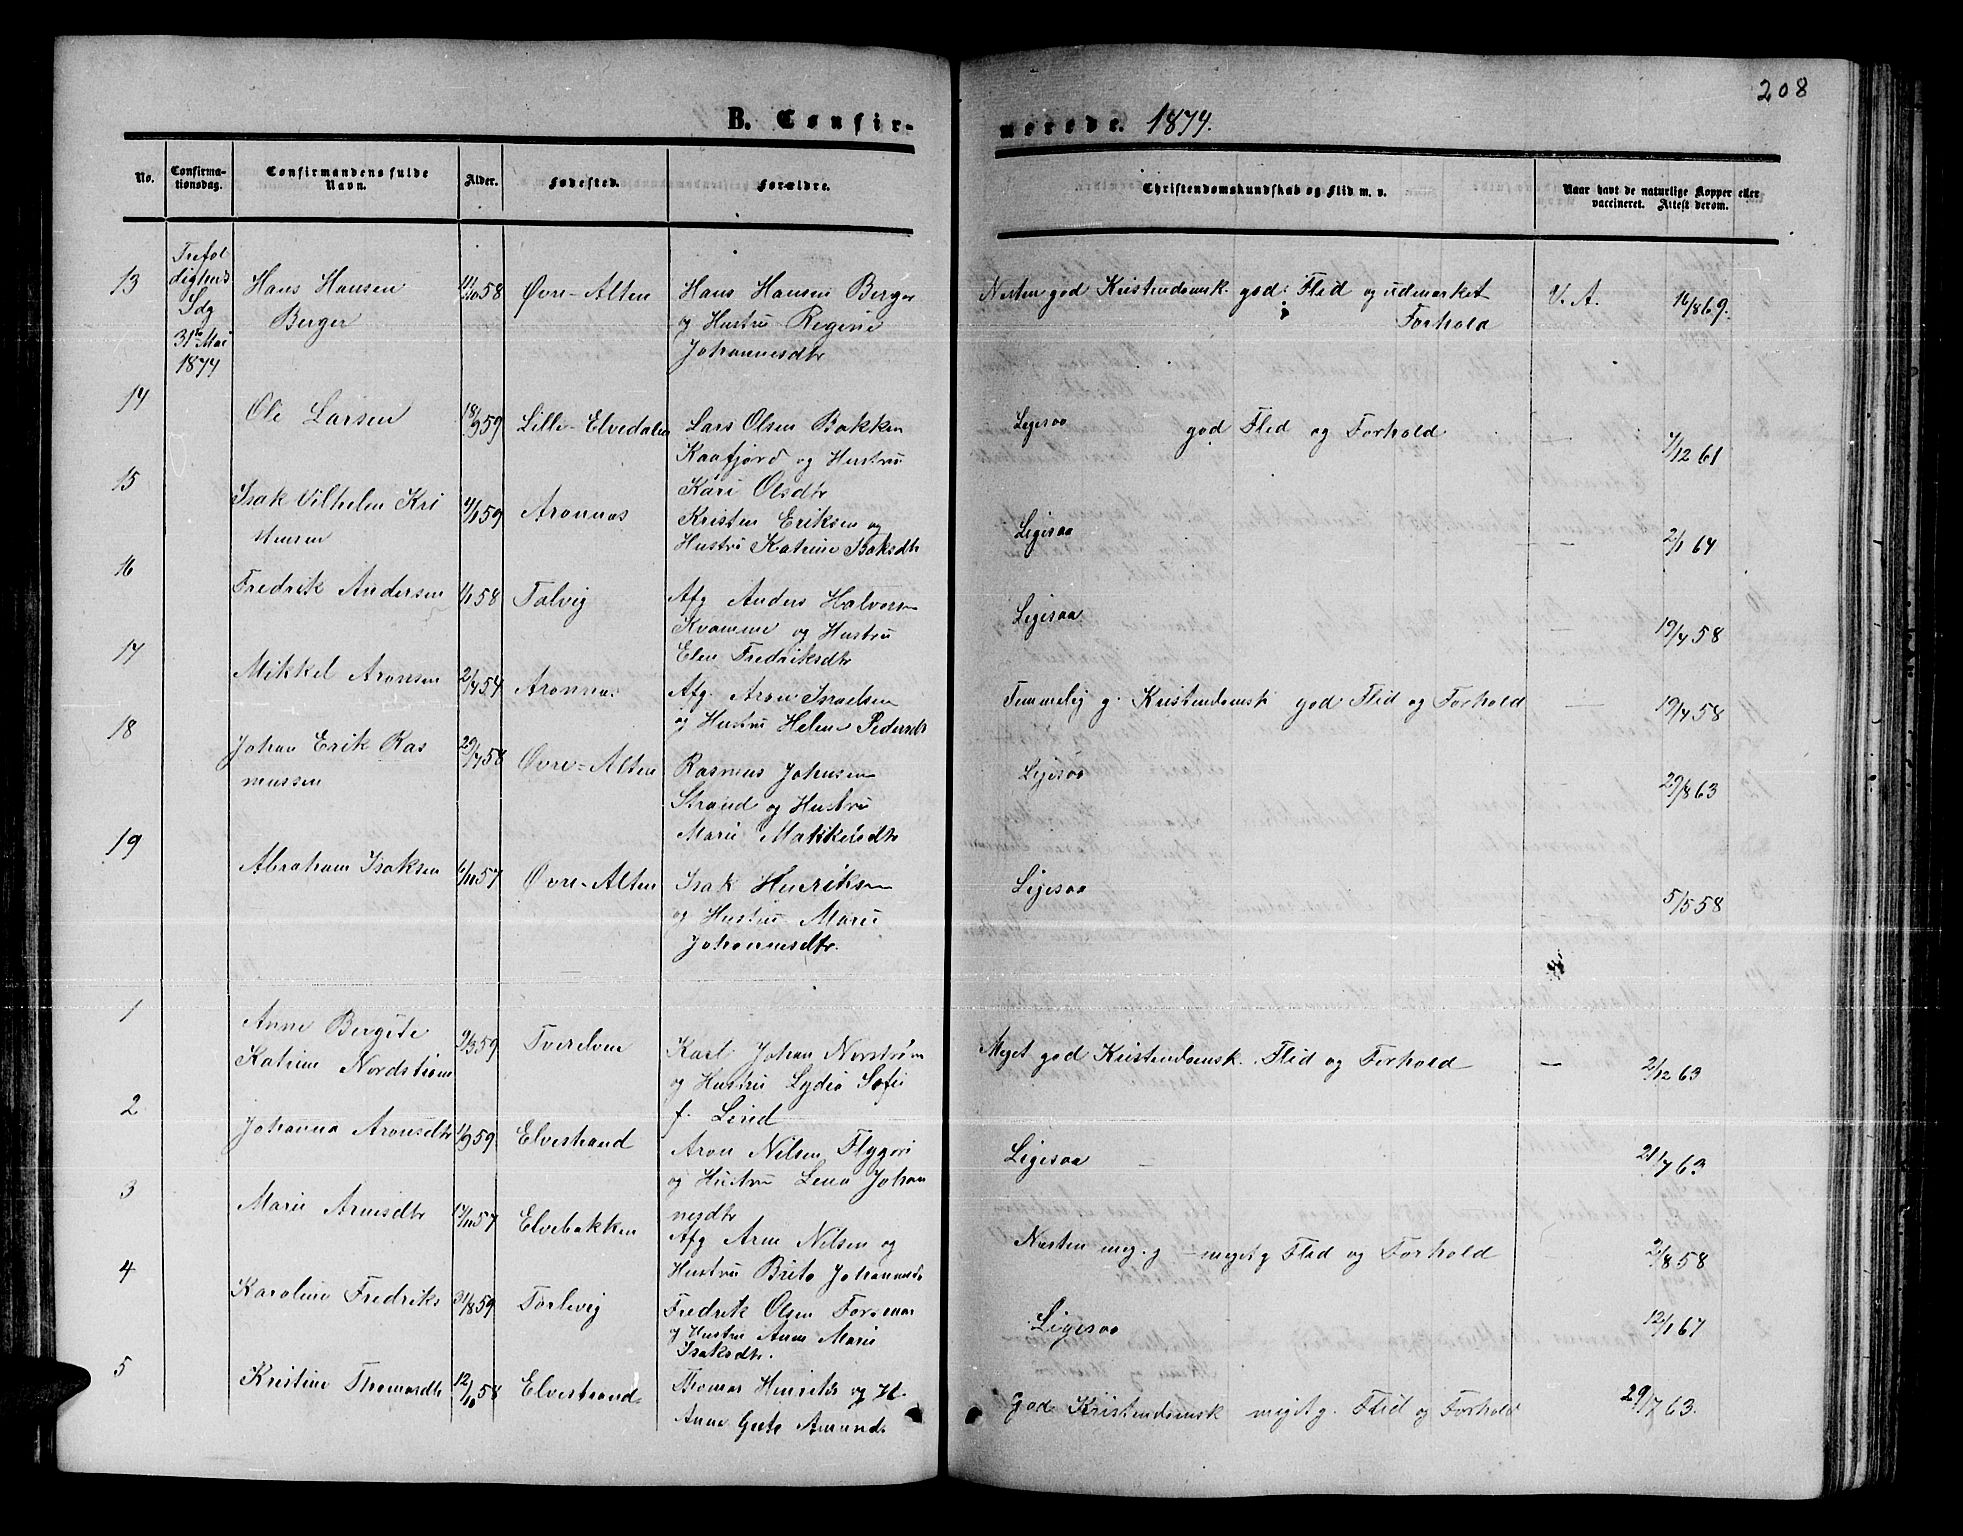 208
B. Confir-
merede. 1874.
No.
Confirma-
tionsdag.
Confirmandens fulde
Navn.
Alder.
Fødested.
Forældre.
Christendomskundskab og Flid m. v.
Naar havt de naturlige Kopper eller
vaccineret. Attest derom.
Trefol
digheds
Sdg
31te Mai
1874
13 Hans Hansen Øvre-Alten Hans Hansen Berger Næsten god Kristendomsk. god Flid og udmærket V. A. 16/8 69.
Berger og Hustru Regine Forhold
Johannesdtr
14 Ole Larsen 18/9 59 Lille-Elvedalen Lars Olsen Bakken Ligesaa god Flid og Forhold — 7/12 61
Kaafjord og Hustru
Kari Olsdtr
15 Isak Vilhelm Kri 4/1 59 Aronnæs Kristen Eriksen og Ligesaa — 2/1 64
stensen Hustru Katrine Isaksdtr
16 Fredrik Andersen 1/1 58 Talvig Afg Anders Halvorsen Ligesaa 19/4 58
Kvamme og Hustru
Elen Fredriksdtr
17 Mikkel Aronsen 2/4 54 Aronnæs Afg. Aron Israelsen Temmelig g. Kristendomsk god Flid og Forhold — 19/4 58
og Hustru Helene Pedersdtr
18 Johan Erik Ras 29/7 58 Øvre-Alten Rasmus Johansen Ligesaa 29/8 63
mussen Strand og Hustru
Marie Mathisdtr
19 Abraham Isaksen 57 Øvre-Alten Isak Henriksen Ligesaa 5/5 58
og Hustru Marie
Johannesdtr.
1 Anne Bergite 9/3 59 Tverelven Karl Johan Norstrøm Meget god Kristendomsk. Flid og Forhold — 2/12 63
Katrine Nordstrøm og Hustru Lydia Sofie
f. Lind
2 Johanna Aronsdtr 1/9 59 Elvestrand Aron Nilsen Flygari Ligesaa — 21/7 63
og Hustru Lena Johan
nesdtr
3 Marie Arnesdtr 57 Elvebakken Afg Arne Nilsen og Næsten meg. g — meget g Flid og Forhold 2/8 58
Hustru Brita Johannesd
4 Karoline Fredriks 31/8 59 Fredrik Olsen Ligesaa 12/1 67
og Hustru Anne Marie
Isaksdtr.
5 Kristine Thomasdtr 12/10 58 Elvestrand Thomas Henriks og H. god Kristendomsk meget g. Flid og Forhold 29/7 63.
Anne Grete Amunds